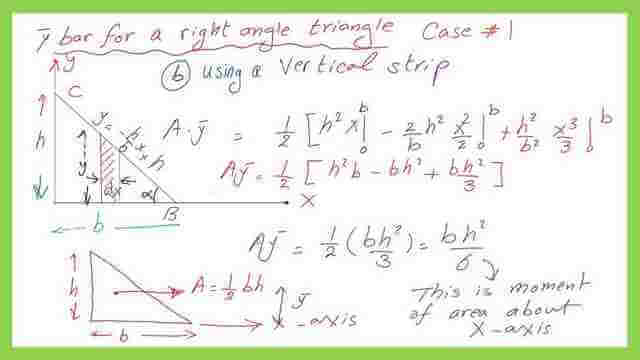 ȳ bar for a right angle triangle Case #1
b using a vertical strip
y
C
h
y = -h/b x + h
y
dx
α
B
X
b
A·ȳ = 1/2 [h²x|₀ᵇ - 2/b h² x²/2|₀ᵇ + h²/b² x³/3|₀ᵇ
Aȳ = 1/2 [h²b - bh² + bh²/3]
Aȳ = 1/2 (bh²/3) = bh²/6
This is moment
of area about
X-axis
h
A = 1/2 bh
ȳ
X-axis
b